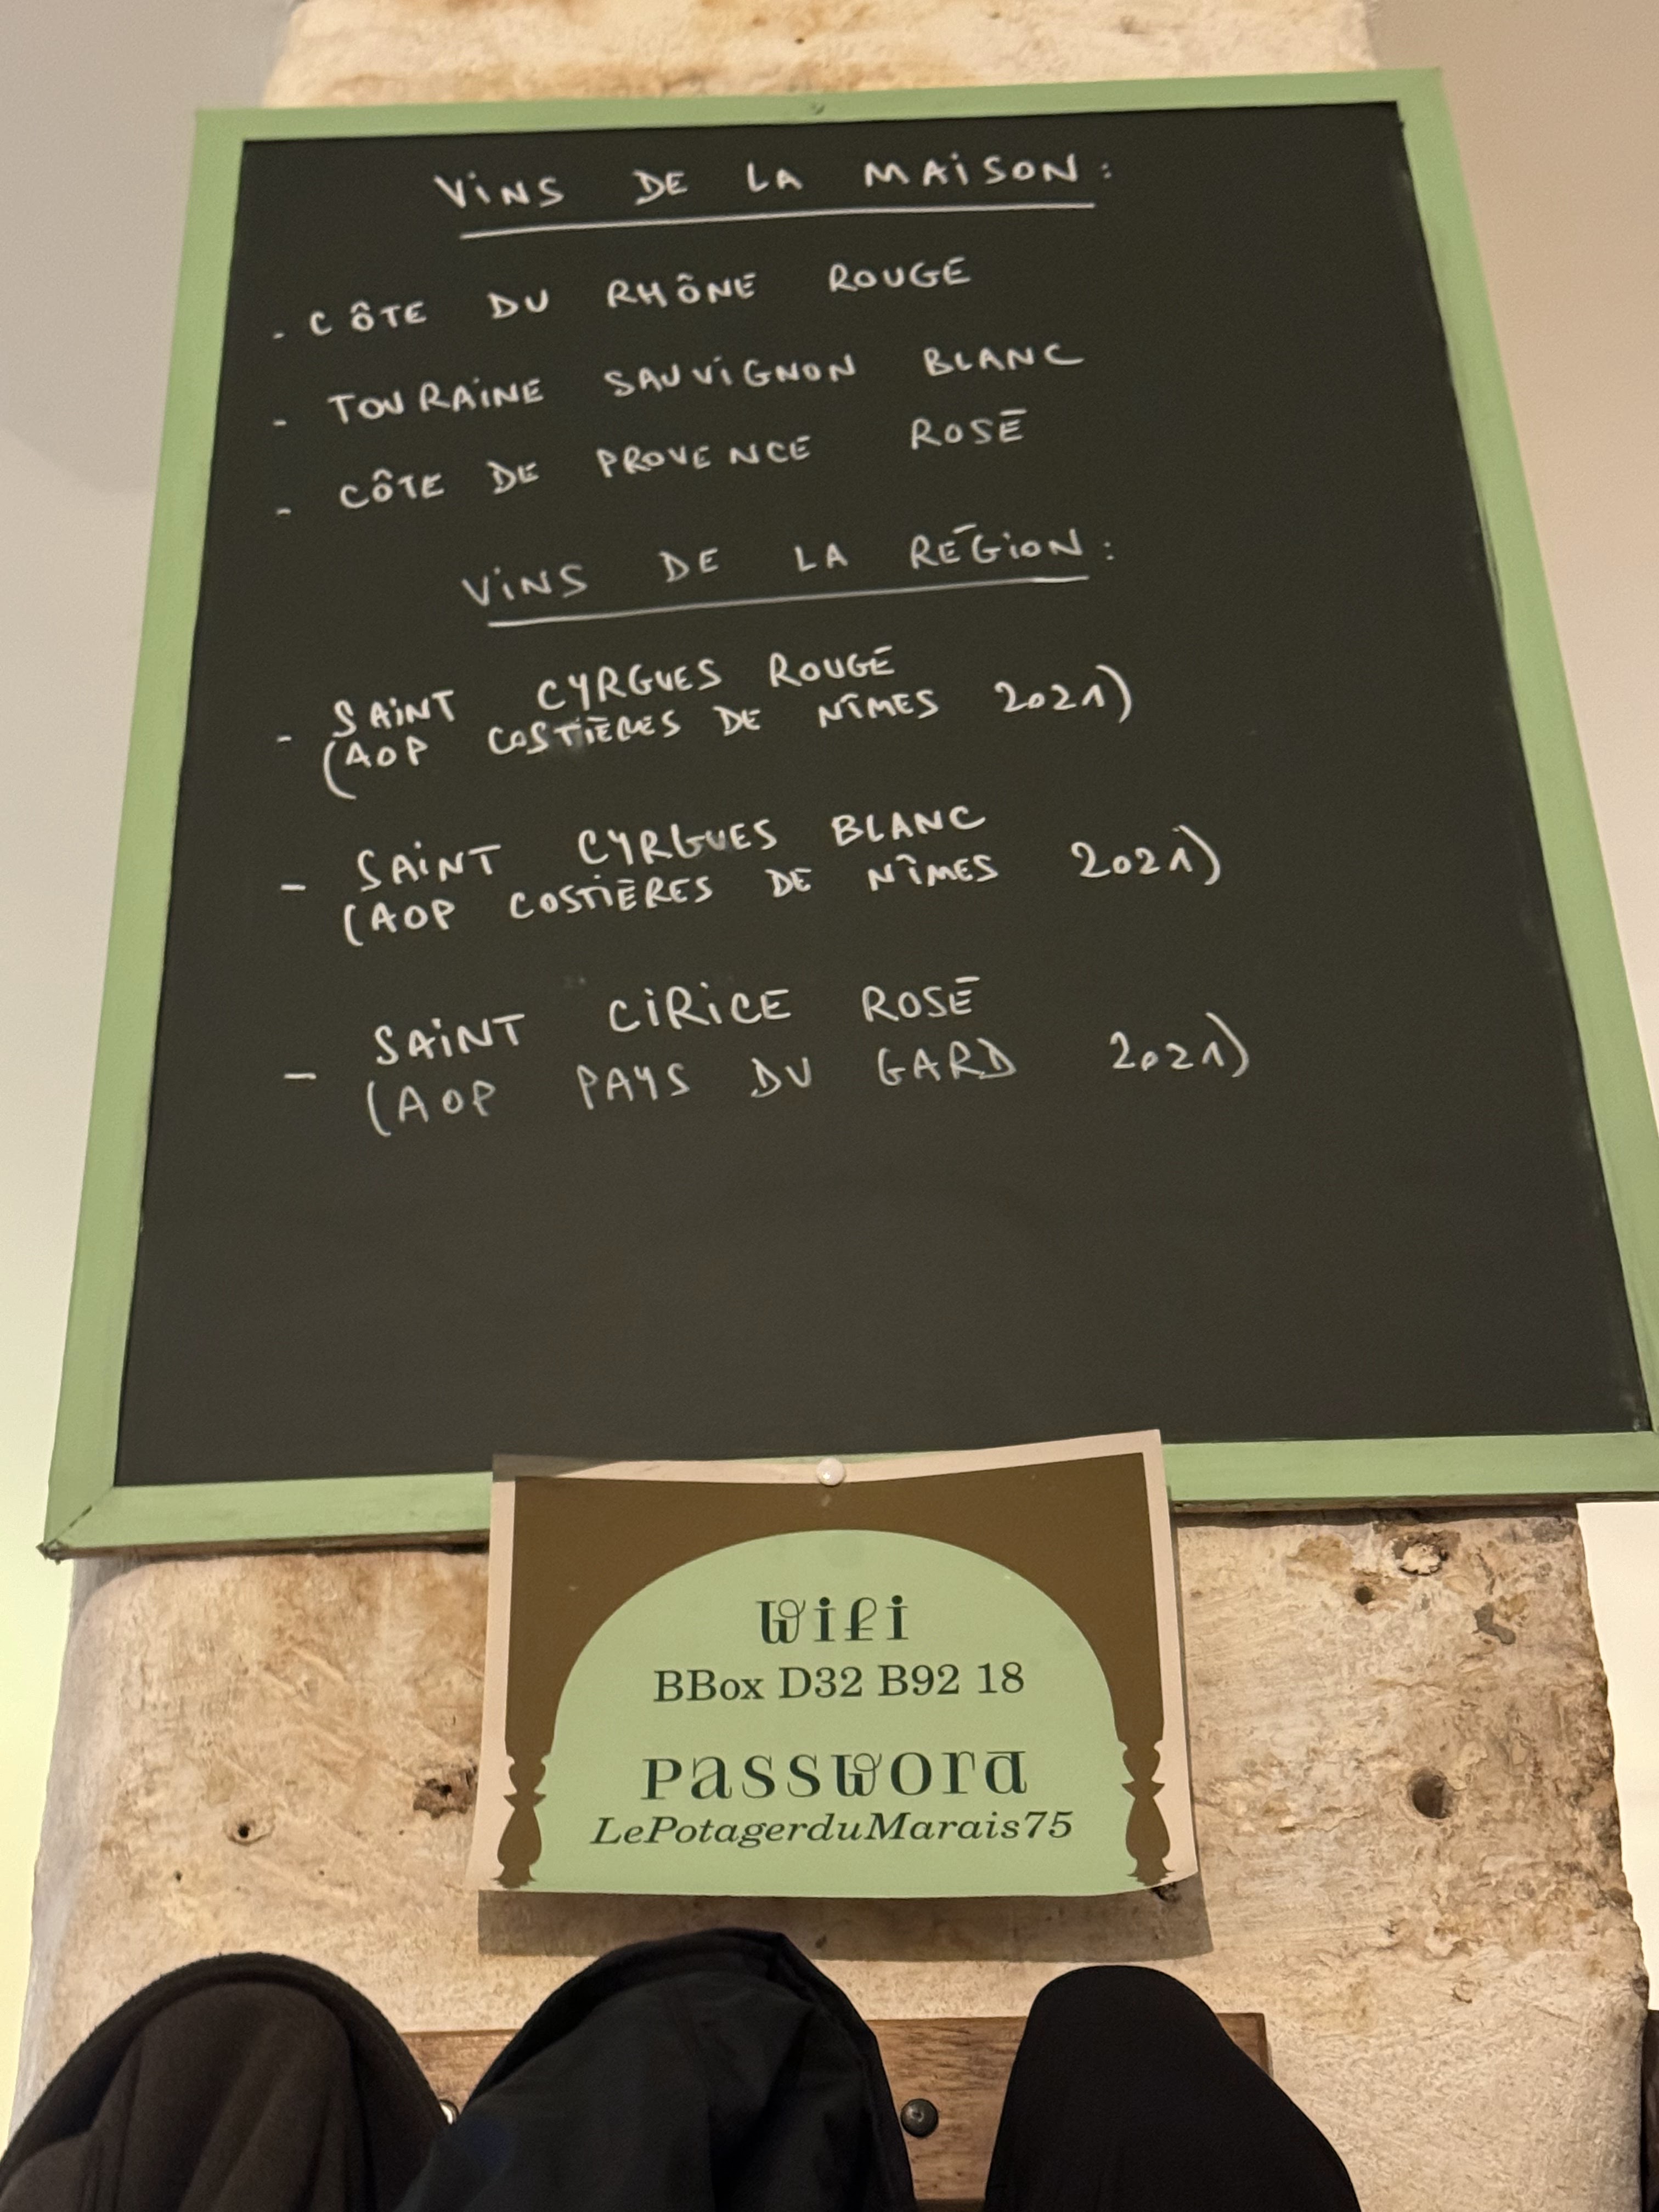 VINS DE LA MAISON :
- CÔTE DU RHÔNE ROUGE
- TOURAINE SAUVIGNON BLANC
- CÔTE DE PROVENCE ROSÉ
VINS DE LA RÉGION :
- SAINT CYRGUES ROUGE
(AOP COSTIÈRES DE NÎMES 2021)
- SAINT CYRGUES BLANC
(AOP COSTIÈRES DE NÎMES 2021)
- SAINT CIRICE ROSÉ
(AOP PAYS DU GARD 2021)
Wifi
BBox D32 B92 18
Password
LePotagerduMarais75